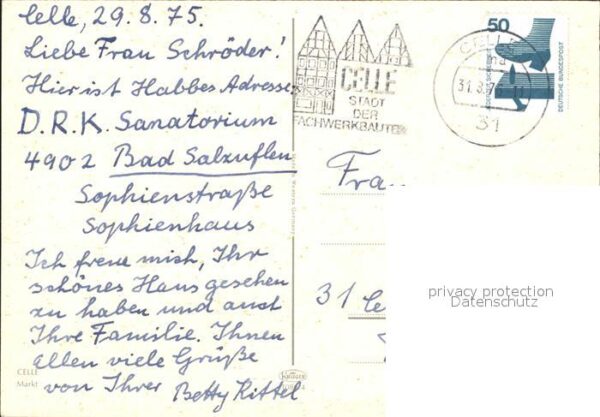 Celle, 29.8.75.
Liebe Frau Schröder!
Hier ist Habbes Adresse
D.R.K. Sanatorium
4902 Bad Salzuflen
Sophienstraße
Sophienhaus
Ich freue mich, Ihr
schönes Haus gesehen
zu haben und auch
Ihre Familie. Ihnen
allen viele Grüße
von Ihrer Betty Kittel
CELLE
Markt
CELLE
STADT
DER
FACHWERKBAUTEN
50
DEUTSCHE BUNDESPOST
CELLE
31
Frau
31 Ce
privacy protection
Datenschutz